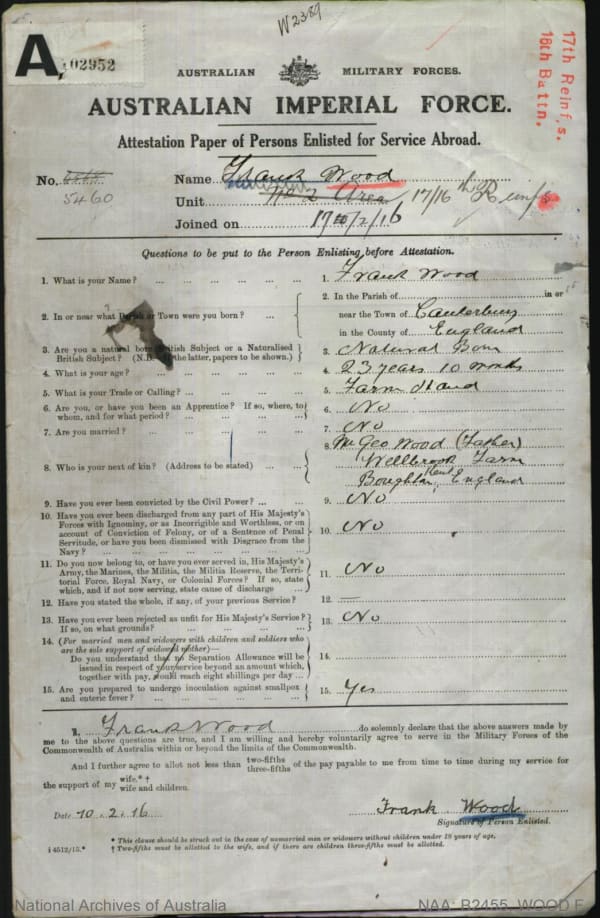 W2389
A,
102952
17th Reinf,s.
16th Battn.
AUSTRALIAN MILITARY FORCES.
AUSTRALIAN IMPERIAL FORCE.
Attestation Paper of Persons Enlisted for Service Abroad.
No. 5460
Name Frank Wood
Unit No 2 Area 17/16th Reinfs
Joined on 17/2/16
Questions to be put to the Person Enlisting before Attestation.
1. What is your Name? ... 1. Frank Wood
2. In or near what Parish or Town were you born? ... 2. In the Parish of in or
near the Town of Canterbury
in the County of England
3. Are you a natural born British Subject or a Naturalised
British Subject? (N.B. the latter, papers to be shown.) 3. Natural Born
4. What is your age? ... 4. 23 years 10 months
5. What is your Trade or Calling? ... 5. Farm Hand
6. Are you, or have you been an Apprentice? If so, where, to
whom, and for what period? ... 6. No
7. Are you married? ... 7. No
8. Who is your next of kin? (Address to be stated) ... 8. Mr Geo Wood (Father)
Wellbrook Farm
Boughton, Kent England
9. Have you ever been convicted by the Civil Power? ... 9. No
10. Have you ever been discharged from any part of His Majesty's
Forces with Ignominy, or as Incorrigible and Worthless, or on
account of Conviction of Felony, or of a Sentence of Penal
Servitude, or have you been Dismissed with Disgrace from the
Navy? ... 10. No
11. Do you now belong to, or have you ever served in, His Majesty's
Army, the Marines, the Militia, the Militia Reserve, the Terri-
torial Force, Royal Navy, or Colonial Forces? If so, state
which, and if not now serving, state cause of discharge ... 11. No
12. Have you stated the whole, if any, of your previous Service? 12. —
13. Have you ever been rejected as unfit for His Majesty's Service?
If so, on what grounds? ... 13. No
14. (For married men and widowers with children and soldiers who
are the sole support of widowed mother)—
Do you understand that no Separation Allowance will be
issued in respect of your service beyond an amount which,
together with pay, would reach eight shillings per day ... 14.
15. Are you prepared to undergo inoculation against smallpox
and enteric fever? ... 15. Yes
I, Frank Wood do solemnly declare that the above answers made by
me to the above questions are true, and I am willing and hereby voluntarily agree to serve in the Military Forces of the
Commonwealth of Australia within or beyond the limits of the Commonwealth.
And I further agree to allot not less than two-fifths three-fifths of the pay payable to me from time to time during my service for
the support of my wife.* † wife and children.
Date 10.2.16
Frank Wood
Signature of Person Enlisted.
* This clause should be struck out in the case of unmarried men or widowers without children under 18 years of age.
i 4512/15.* † Two-fifths must be allotted to the wife, and if there are children three-fifths must be allotted.
National Archives of Australia
NAA: B2455, WOOD F